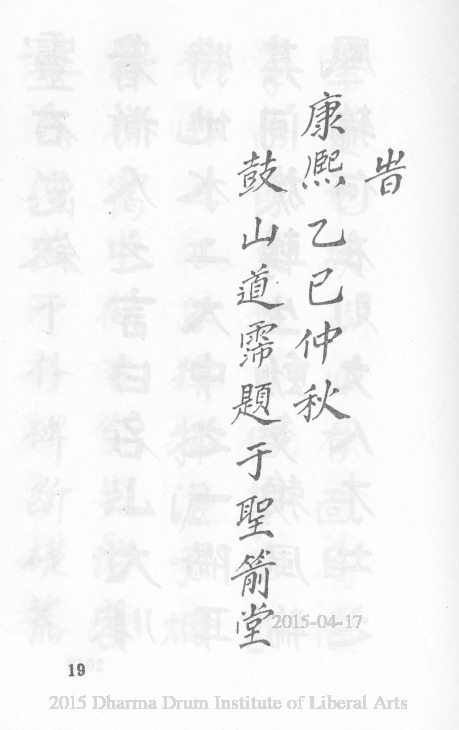 旹
康熙乙巳仲秋
鼓山道霈題于聖箭堂
2015-04-17
19
2015 Dharma Drum Institute of Liberal Arts